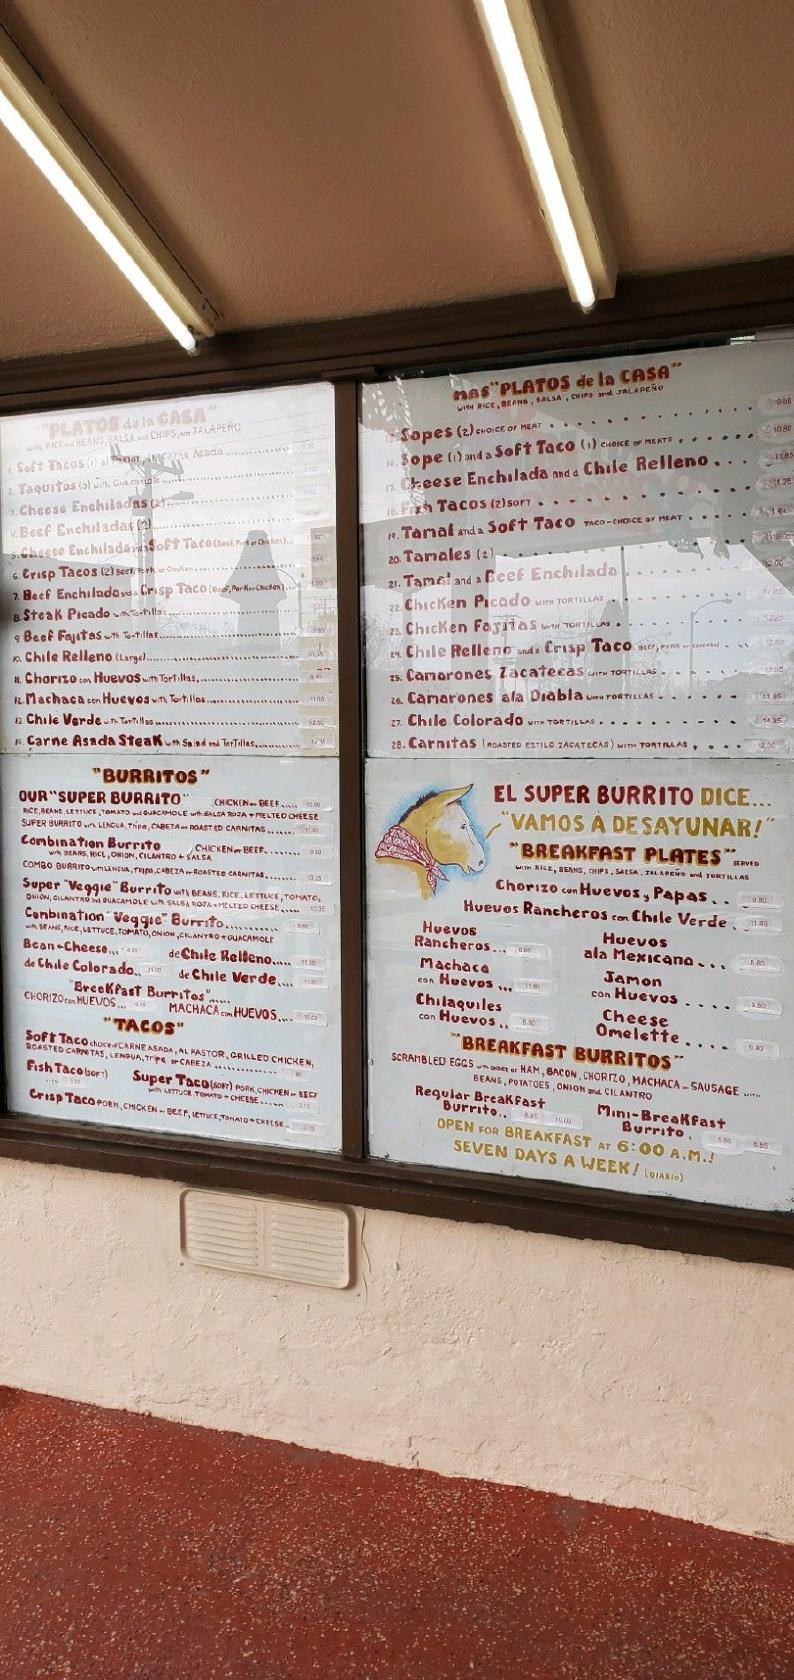 "PLATOS de la CASA"
with RICE and BEANS, SALSA and CHIPS, and JALAPEÑO
1. Soft Tacos (1) al Pastor, Carne Asada
2. Taquitos (3) with Guacamole
3. Cheese Enchiladas (2)
4. Beef Enchiladas (2)
5. Cheese Enchilada and Soft Taco (Beef, Pork or Chicken)
6. Crisp Tacos (2) Beef, Pork or Chicken
7. Beef Enchilada and Crisp Taco (Beef, Pork or Chicken)
8. Steak Picado with Tortillas
9. Beef Fajitas with Tortillas
10. Chile Relleno (Large)
11. Chorizo con Huevos with Tortillas
12. Machaca con Huevos with Tortillas
13. Chile Verde with Tortillas
14. Carne Asada Steak with Salad and Tortillas
"BURRITOS"
OUR "SUPER BURRITO" CHICKEN or BEEF
RICE, BEANS, LETTUCE, TOMATO and GUACAMOLE with SALSA ROJA + MELTED CHEESE
SUPER BURRITO with LENGUA, Tripa, CABEZA or ROASTED CARNITAS
Combination Burrito CHICKEN or BEEF
with BEANS, RICE, ONION, CILANTRO + SALSA
COMBO BURRITO with LENGUA, TRIPA, CABEZA or ROASTED CARNITAS
Super "Veggie" Burrito with BEANS, RICE, LETTUCE, TOMATO,
ONION, CILANTRO and GUACAMOLE with SALSA ROJA + MELTED CHEESE
Combination "Veggie" Burrito
with BEANS, RICE, LETTUCE, TOMATO, ONION, CILANTRO + GUACAMOLE
Bean-Cheese... de Chile Relleno...
de Chile Colorado.. de Chile Verde...
"Breakfast Burritos"
CHORIZO con HUEVOS... MACHACA con HUEVOS....
"TACOS"
Soft Taco choice of CARNE ASADA, AL PASTOR, GRILLED CHICKEN,
ROASTED CARNITAS, LENGUA, Tripa, or CABEZA
Fish Taco (SOFT) Super Taco (SOFT) PORK, CHICKEN or BEEF
with LETTUCE TOMATO + CHEESE
Crisp Taco PORK, CHICKEN or BEEF, LETTUCE, TOMATO + CHEESE
MAS "PLATOS de la CASA"
WITH RICE, BEANS, SALSA, CHIPS and JALAPEÑO
15. Sopes (2) CHOICE OF MEAT
16. Sope (1) and a Soft Taco (1) CHOICE OF MEATS 10.80
17. Cheese Enchilada and a Chile Relleno
18. Fish Tacos (2) SOFT
19. Tamal and a Soft Taco TACO-CHOICE OF MEAT
20. Tamales (2)
21. Tamal and a Beef Enchilada
22. Chicken Picado WITH TORTILLAS
23. Chicken Fajitas WITH TORTILLAS
24. Chile Relleno and a Crisp Taco BEEF, PORK or CHICKEN
25. Camarones Zacatecas WITH TORTILLAS
26. Camarones ala Diabla WITH TORTILLAS
27. Chile Colorado WITH TORTILLAS
28. Carnitas (ROASTED ESTILO ZACATECAS) WITH TORTILLAS
EL SUPER BURRITO DICE...
"VAMOS A DESAYUNAR!"
"BREAKFAST PLATES" SERVED
WITH RICE, BEANS, CHIPS, SALSA, JALAPEÑO and TORTILLAS
Chorizo con Huevos y Papas .. 9.80
Huevos Rancheros con Chile Verde . 11.49
Huevos Rancheros...
Huevos ala Mexicana... 8.80
Machaca con Huevos ...
Jamon con Huevos ....
Chilaquiles con Huevos..
Cheese Omelette....
"BREAKFAST BURRITOS"
SCRAMBLED EGGS with choice of HAM, BACON, CHORIZO, MACHACA or SAUSAGE with
BEANS, POTATOES, ONION and CILANTRO
Regular Breakfast Burrito.. 8.45 10.00
Mini-Breakfast Burrito.
OPEN FOR BREAKFAST AT 6:00 A.M.!
SEVEN DAYS A WEEK! (DIARIO)